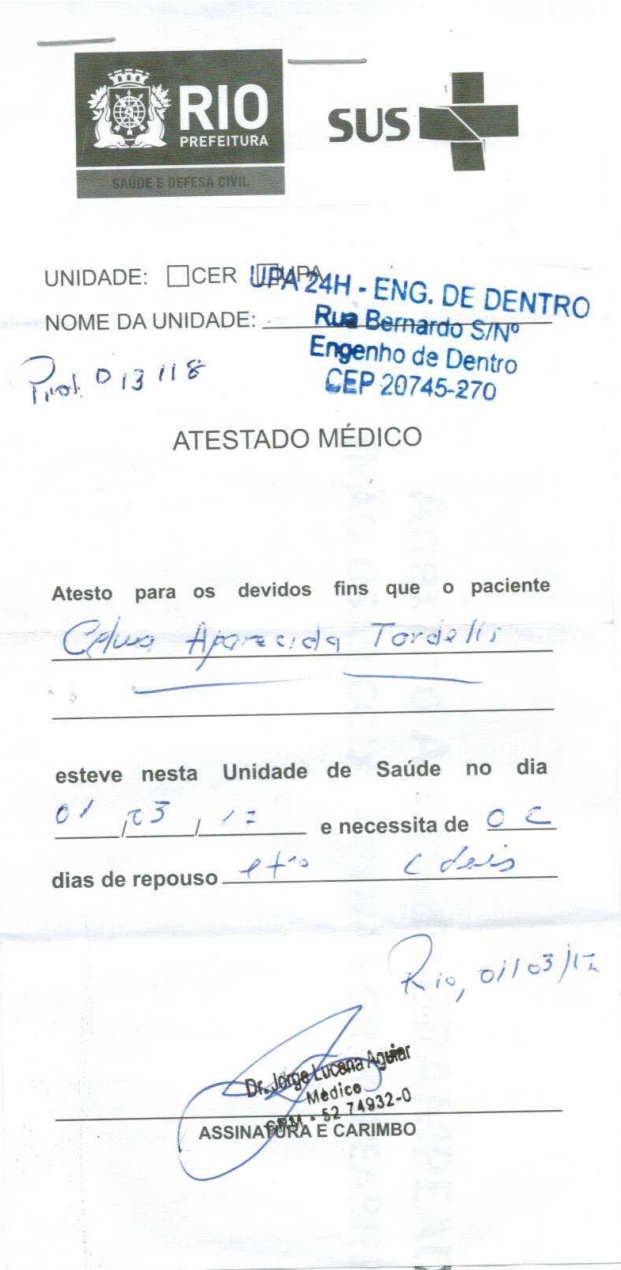 RIO
PREFEITURA
SAÚDE E DEFESA CIVIL
SUS
UNIDADE: CER UPA
UPA 24H - ENG. DE DENTRO
NOME DA UNIDADE:
Rua Bernardo S/Nº
Engenho de Dentro
CEP 20745-270
013118
ATESTADO MÉDICO
Atesto para os devidos fins que o paciente
Aparecida Tordelli
esteve nesta Unidade de Saúde no dia
01/03/12 e necessita de 02
dias de repouso
Rio, 01/03/12
Dr. Jorge Lucena Aguiar
Médico
CRM - 52 74932-0
ASSINATURA E CARIMBO